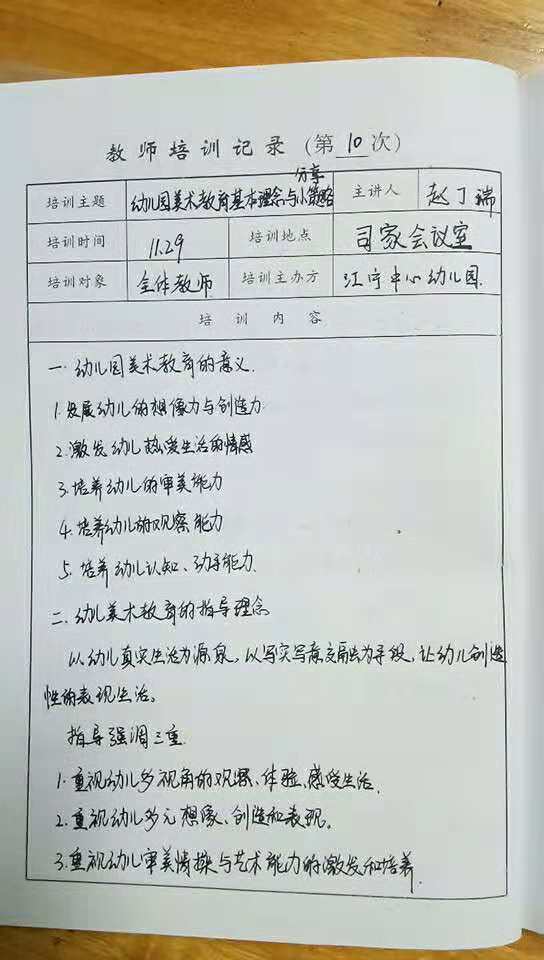 教师培训记录（第10次）
培训主题 幼儿园美术教育基本理念与小策略分享 主讲人 赵丁瑞
培训时间 11.29 培训地点 司家会议室
培训对象 全体教师 培训主办方 江宁中心幼儿园.
培训内容
一.幼儿园美术教育的意义.
1.发展幼儿的想像力与创造力
2.激发幼儿热爱生活的情感
3.培养幼儿的审美能力
4.培养幼儿的观察能力
5.培养幼儿认知、动手能力.
二.幼儿美术教育的指导理念
以幼儿真实生活为源泉,以写实写意交融为手段,让幼儿创造
性的表现生活。
指导强调三重.
1.重视幼儿多视角的观察、体验、感受生活.
2.重视幼儿多元想像、创造和表现。
3.重视幼儿审美情操与艺术能力的激发和培养.